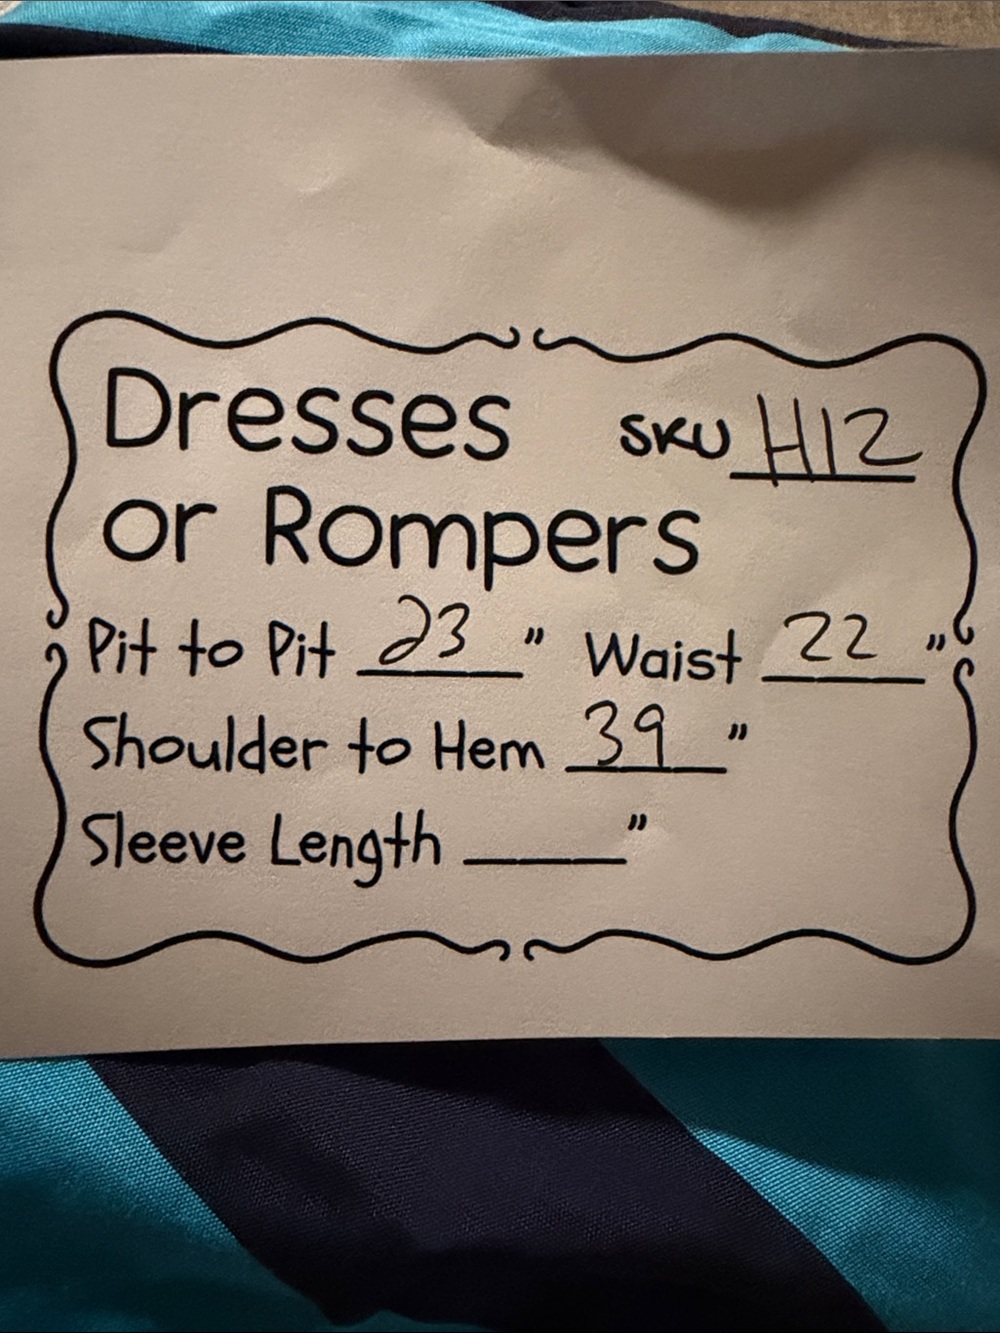 Dresses SKU H12
or Rompers
Pit to Pit 23" Waist 22"
Shoulder to Hem 39"
Sleeve Length ____"